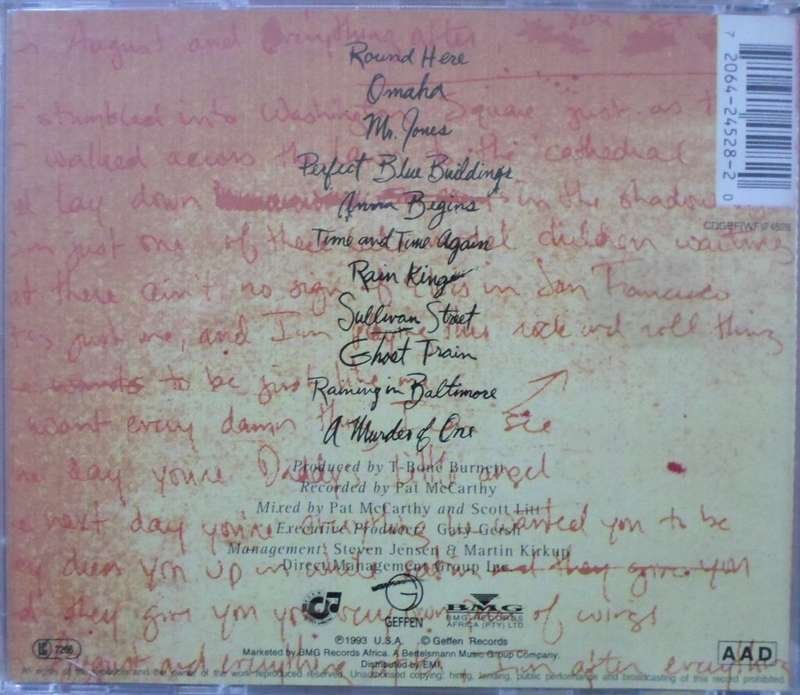 August and everything after
Round Here
Omaha
I stumbled into Washington Square just as
Mr. Jones
walked across the to the cathedral
Perfect Blue Buildings
lay down in the shadow
Anna Begins
just one of these children waiting
Time and Time Again
there ain't no sign of in San Francisco
Rain King
Sullivan Street
just me, and I'm this rock and roll thing
Ghost Train
to be just like me
Raining in Baltimore
want every damn see
A Murder of One
Produced by T-Bone Burnett
day you're Daddy's little angel
Recorded by Pat McCarthy
Mixed by Pat McCarthy and Scott Litt
next day you're everything he wanted you to be
Executive Producer Gary Gersh
Management: Steven Jensen & Martin Kirkup/
dress you up in and they give you
Direct Management Group Inc
they give you your very own of wings
GEFFEN
BMG
BMG RECORDS
AFRICA (PTY) LTD
℗1993 U.S.A. © Geffen Records
Marketed by BMG Records Africa. A Bertelsmann Music Group Company.
Distributed by EMI.
August and everything after I'm after everything
All rights of the producer and the owner of the work reproduced reserved. Unauthorised copying, hiring, lending, public performance and broadcasting of this record prohibited.
7 2064-24528-2 0
AAD